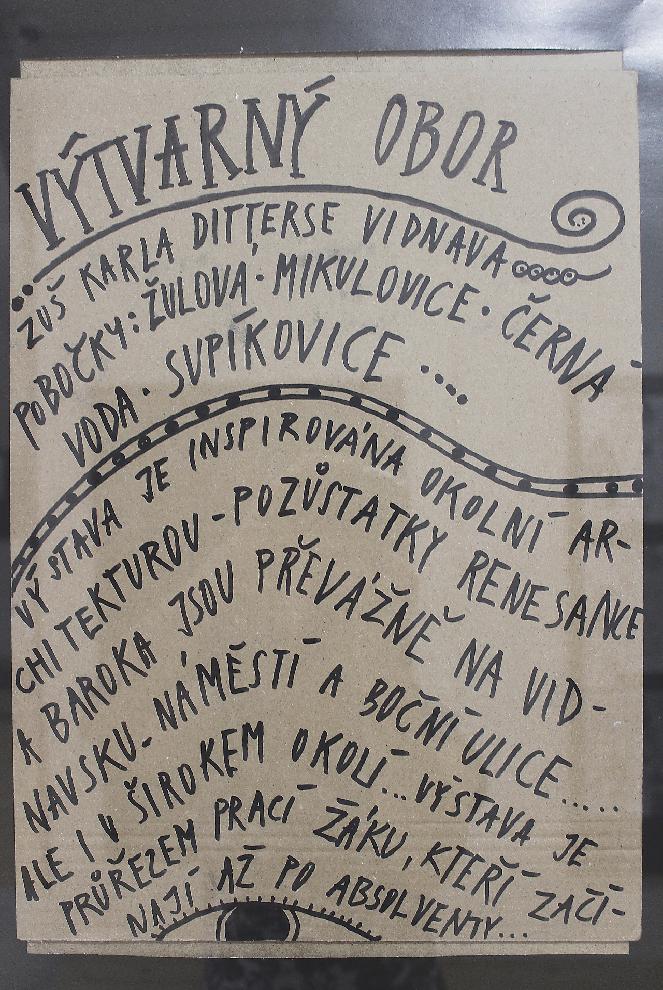 VÝTVARNÝ OBOR
ZUŠ KARLA DITTERSE VIDNAVA
POBOČKY: ŽULOVÁ · MIKULOVICE · ČERNÁ
VODA · SUPÍKOVICE ....
VÝSTAVA JE INSPIROVÁNA OKOLNÍ AR-
CHITEKTUROU - POZŮSTATKY RENESANCE
A BAROKA JSOU PŘEVÁŽNĚ NA VID-
NAVSKU - NÁMĚSTÍ A BOČNÍ ULICE.....
ALE I V ŠIROKÉM OKOLÍ... VÝSTAVA JE
PRŮŘEZEM PRACÍ ŽÁKU, KTEŘÍ ZAČÍ-
NAJÍ AŽ PO ABSOLVENTY...